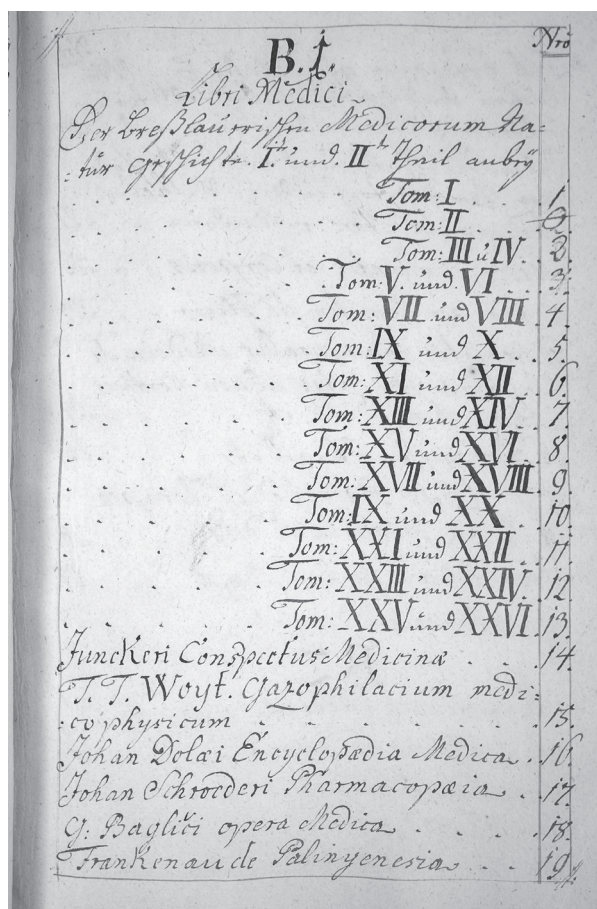 Nrô
B. I.
Libri Medici
Der Breßlauerischen Medicorum Na=
:tür Geschichte. I.ter und. IIter Theil anbey
Tom: I . . 1.
Tom: II . .
Tom: III u IV. . 2.
Tom: V. und VI . 3.
Tom: VII und VIII . 4.
Tom: IX und X . 5.
Tom: XI und XII . 6.
Tom: XIII und XIV . 7.
Tom: XV und XVI . 8.
Tom: XVII und XVIII . 9.
Tom: IX und XX . 10.
Tom: XXI und XXII . 11.
Tom: XXIII und XXIV . 12.
Tom: XXV und XXVI . 13.
Junckeri Conspectus Medicinæ . . . 14.
T. T. Woyt. Gazophilacium medi:
:co physicum . . . . . . 15.
Johan Dolæi Encyclopædia Medica . 16.
Johan Schroederi Pharmacopæia . . 17.
G: Baglivi opera Medica . . . 18.
Frankenau de Palinyenesia . . . 19.